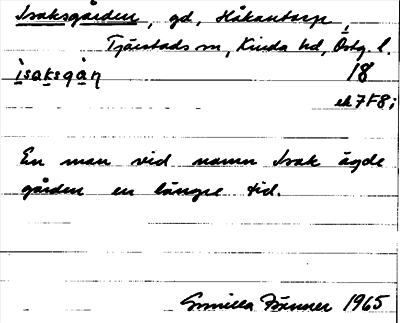 Isaksgården, gd, Håkantorp,
Tjärstads sn, Kinda hd, Östg. l.
ìsaksgàṇ 18
ek 7F8i
En man vid namn Isak ägde
gården en längre tid.
Gunilla Fränner 1965